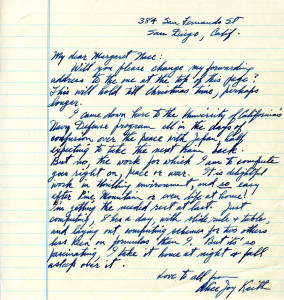 384 San Fernando St
San Diego, Calif.
My dear Margaret Nace:
Will you please change my forwarding
address to the one at the top of this page?
This will hold till Christmas time, perhaps
longer.
I came down here to the University of California's
Navy Defense program — all in the days of
confusion over the peace with Japan, fully
expecting to take the next train back.
But no, the work for which I am to compute
goes right on, peace or war. It is delightful
work in thrilling environment, and so easy
after Pine Mountain or even life at home!
I'm getting the needed rest at last. Just
computing, 8 hrs a day, with slide rule & table,
and laying out computing schemes for two others
less keen on formulas than I. But it's so
fascinating, I take it home at night & fall
asleep over it.
Love to all from
Alice Joy Keith